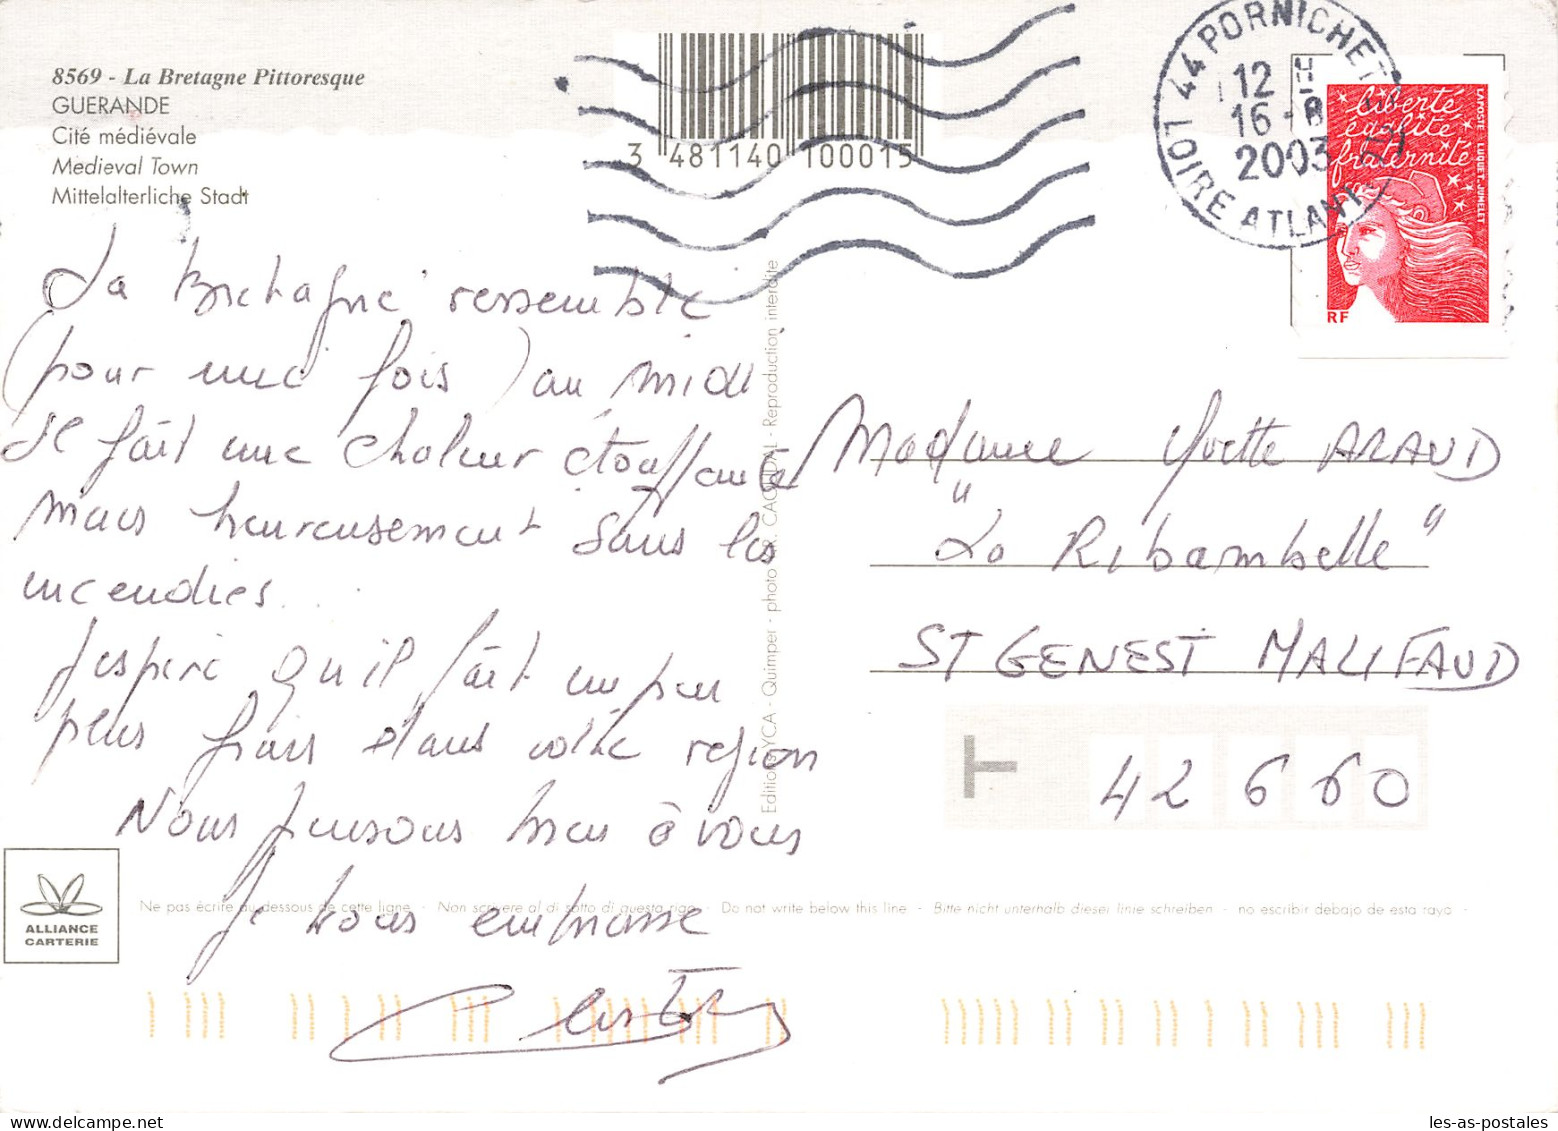 8569 - La Bretagne Pittoresque
GUERANDE
Cité médiévale
Medieval Town
Mittelalterliche Stadt
3 481140 100015
44 PORNICHET
12 H
16 -8
2003
LOIRE ATLANT
liberté
égalité
fraternité
LAPOSTE LUQUET-JUMELET
RF
La Bretagne ressemble
(pour une fois) au midi
Il fait une chaleur étouffante
mais heureusement sans les
incendies...
J'espère qu'il fait un peu
plus frais dans votre région
Nous pensons bien à vous
Je vous embrasse
Editions YCA - Quimper - photo R. CAOUDAL - Reproduction interdite
Madame Yvette ARAUD
"La Ribambelle"
ST GENEST MALIFAUD
42660
ALLIANCE
CARTERIE
Ne pas écrire au dessous de cette ligne - Non scrivere al di sotto di questa riga - Do not write below this line - Bitte nicht unterhalb dieser linie schreiben - no escribir debajo de esta raya -
les-as-postales